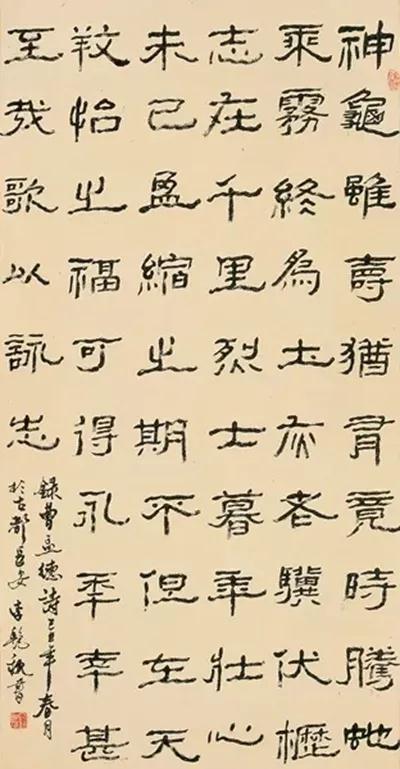 神龜雖壽猶有竟時騰虵
乘霧終為土灰老驥伏櫪
志在千里烈士暮年壯心
未已盈縮之期不但在天
養怡之福可得永年幸甚
至哉歌以詠志
錄曹孟德詩己丑年春月
於古都長安李艷秋書